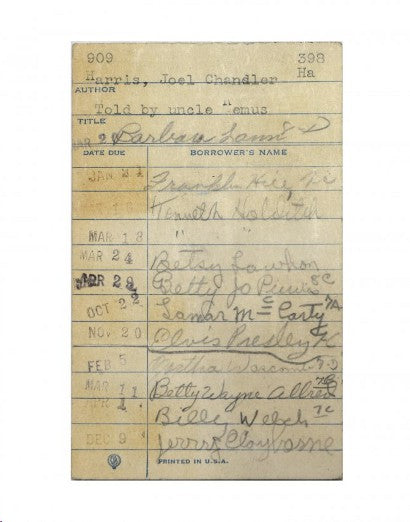 909 398
Harris, Joel Chandler Ha
AUTHOR
Told by uncle Remus
TITLE
Barbara
DATE DUE BORROWER'S NAME
JAN 21 Franklin
Kenneth Holditch
MAR 18 " "
MAR 24 Betsy Lawhon
APR 28 Betty Jo Purvis 8C
OCT 22 Lamar McCarty 7A
NOV 20 Elvis Presley
FEB 5 7-D
MAR 11 Betty Wayne Allred
APR 1 Billy Welch 7C
DEC 9 Jerry Clayborne
PRINTED IN U.S.A.